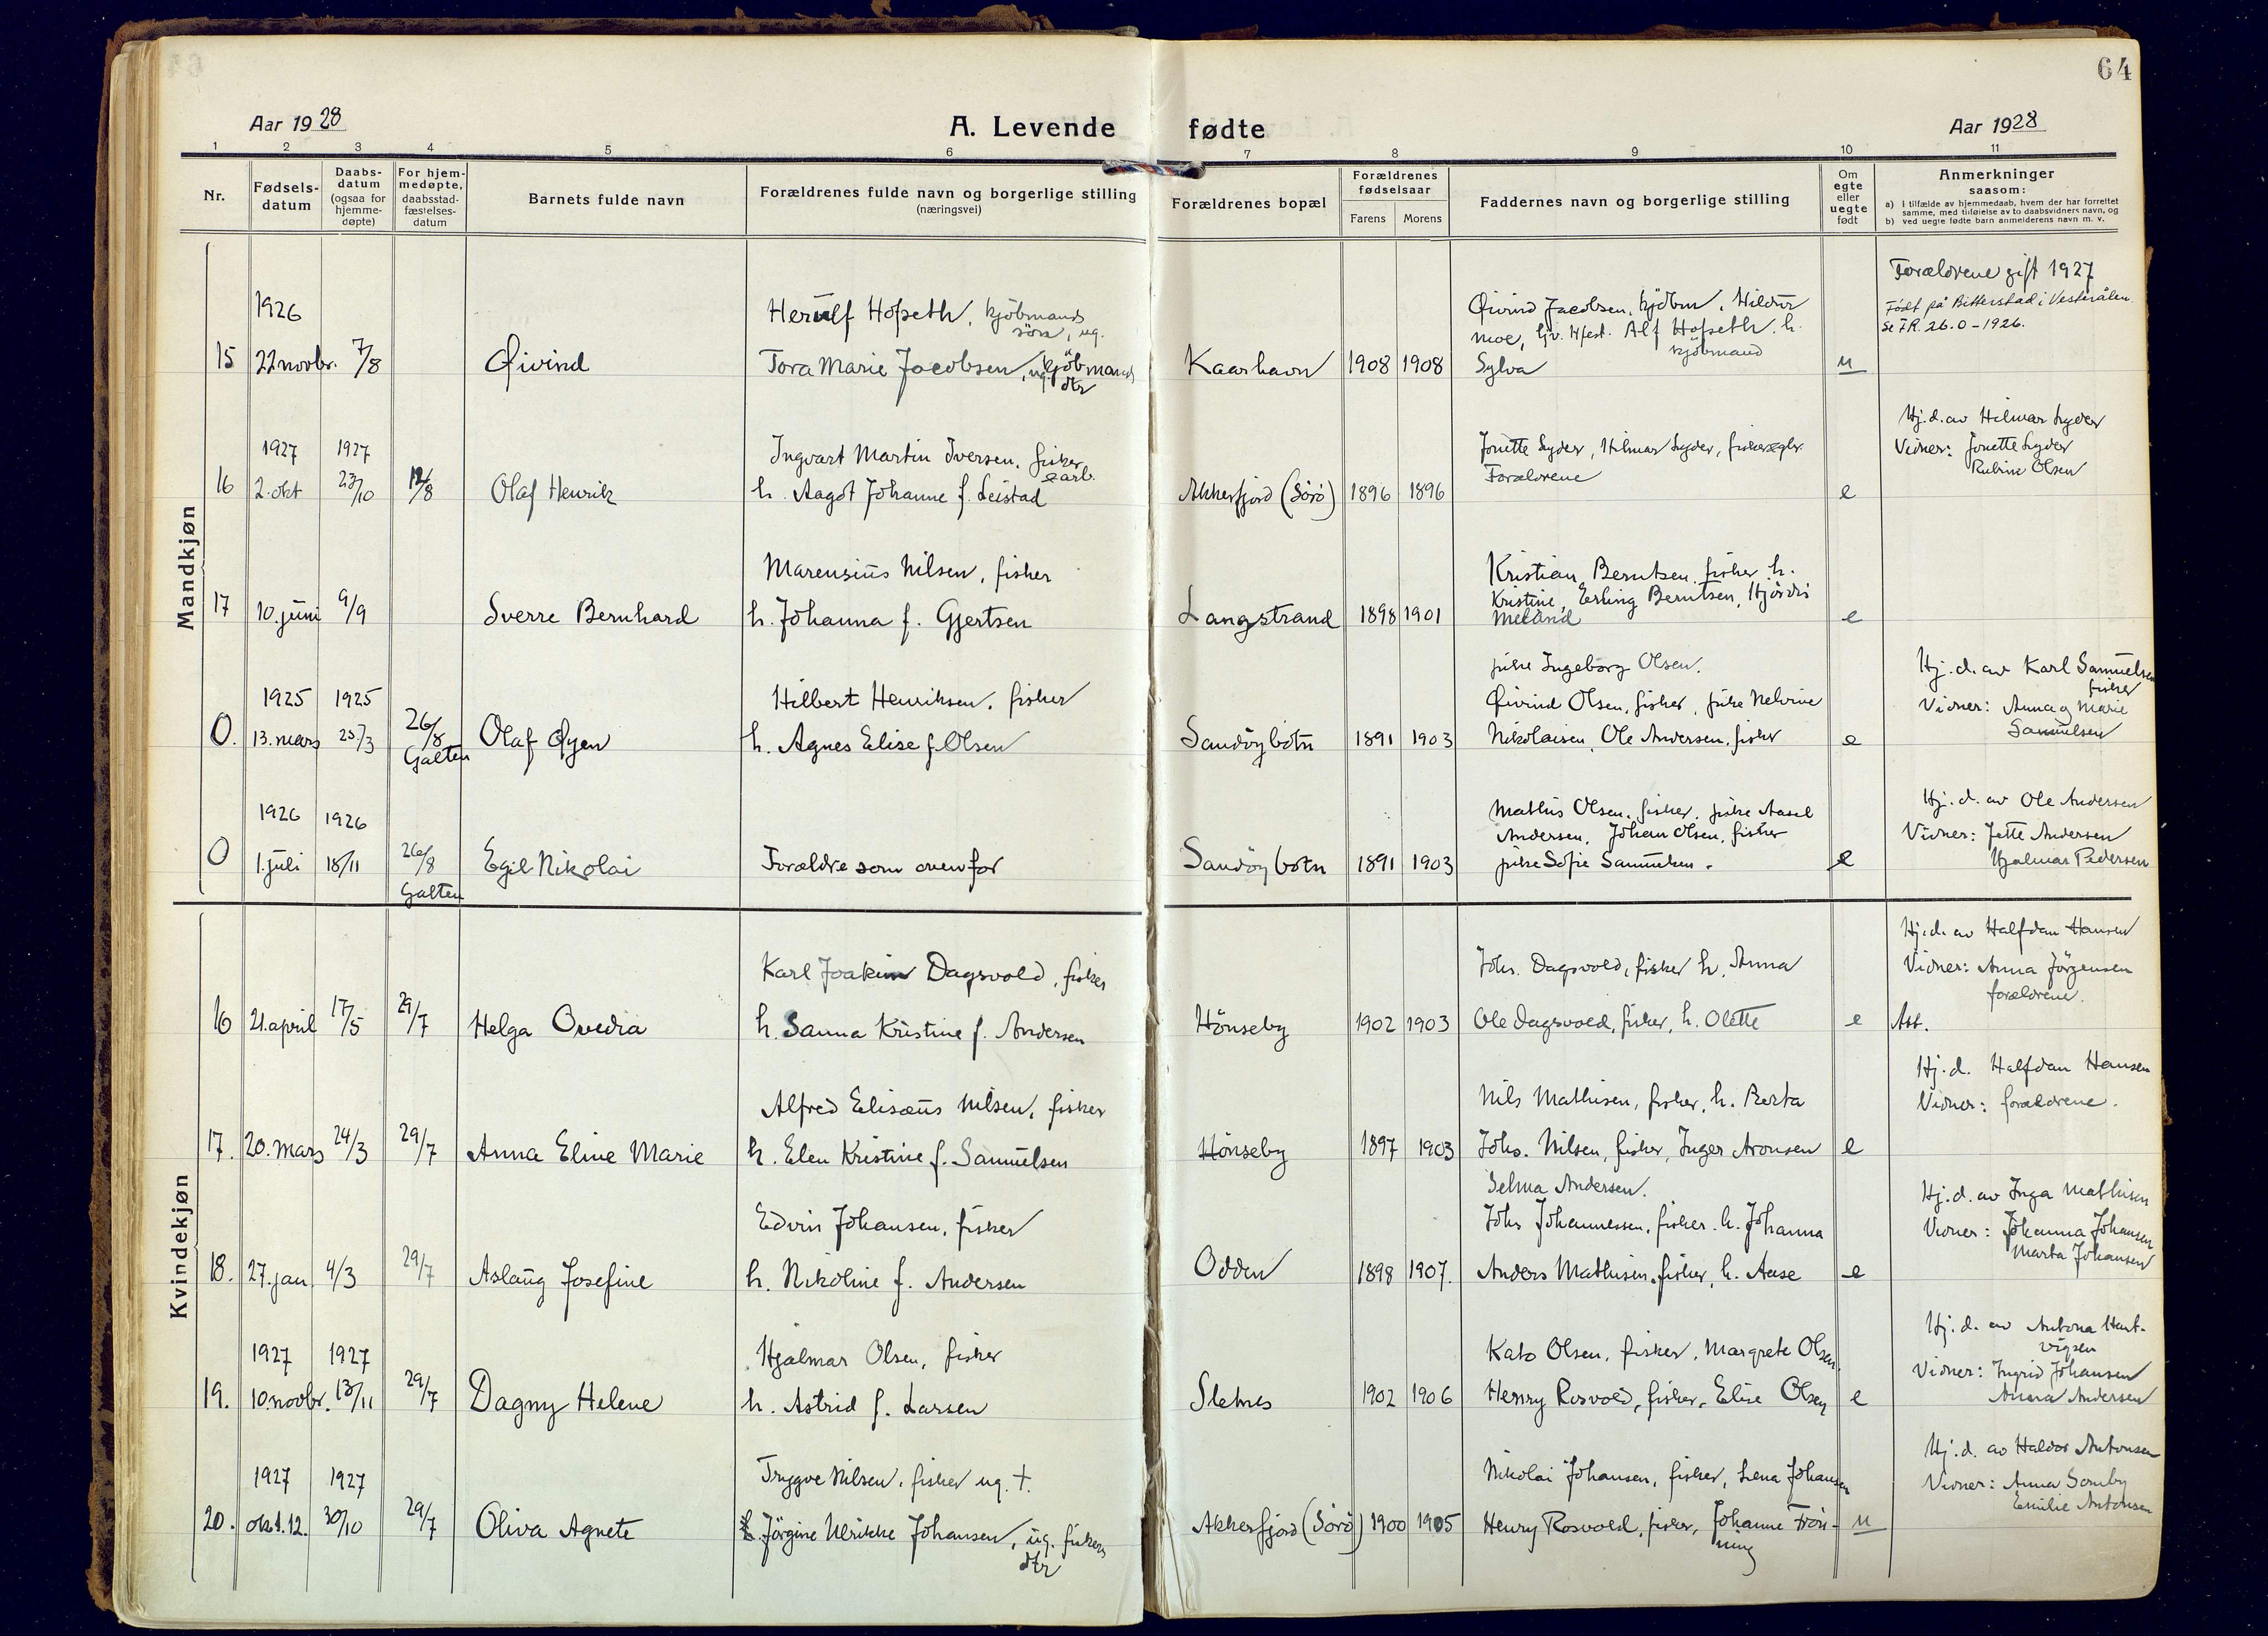 64
Aar 1928
A. Levende fødte
Aar 1928
1 2 3 4 5 6 7 8 9 10 11
Nr.
Fødsels-
datum
Daabs-
datum
(ogsaa for
hjemme-
døpte)
For hjem-
medøpte,
daabsstad-
fæstelses-
datum
Barnets fulde navn
Forældrenes fulde navn og borgerlige stilling
(næringsvei)
Forældrenes bopæl
Forældrenes
fødselsaar
Farens Morens
Faddernes navn og borgerlige stilling
Om
egte
eller
uegte
født
Anmerkninger
saasom:
a) i tilfælde av hjemmedaab, hvem der har forrettet
samme, med tilføielse av to daabsvidners navn, og
b) ved uegte fødte barn anmelderens navn m. v.
Mandkjøn
1926
15 22 novbr. 7/8
Øivind
Herulf Hofseth, kjøbmands
søn, ug.
Tora Marie Jacobsen, ug. kjøbmands
dtr
Kaarhavn 1908 1908
Øivind Jacobsen, kjøbm, Hildur
Moe, Hfest. Alf Hofseth, h.
kjøbmand
Sylva
u
Forældrene gift 1927
Født på Bitterstad i Vesterålen.
Se FR. 26.0-1926.
1927 1927
16 2. okt 23/10 12/8
Olaf Henrik
Ingvart Martin Iversen, fisker
& arb.
h. Aagot Johanne f. Leistad
Akkerfjord (Sørø) 1896 1896
Jonette Lyder, Hilmar Lyder,
Forældrene
e
Hj.d. av Hilmar Lyder
Vidner: Jonette Lyder
Rubine Olsen
17 10. juni 9/9
Sverre Bernhard
Marensius Nilsen, fisker
h. Johanna f. Gjertsen
Langstrand 1898 1901
Kristian Berntsen, fisker, h.
Kristine, Erling Berntsen, Hjørdis
Meland
e
1925 1925
0. 13. mars 25/3 26/8
Galten
Olaf Øyen
Hilbert Henriksen, fisker
h. Agnes Elise f. Olsen
Sandøybotn 1891 1903
pike Ingeborg Olsen.
Øivind Olsen, fisker, pike Nelvine
Nikolaisen, Ole Andersen, fisker
e
Hj. d. av Karl Samuelsen
fisker
Vidner: Anna og Marie
Samuelsen
1926 1926
0 1. juli 18/11 26/8
Galten
Egil Nikolai
Forældre som ovenfor
Sandøybotn 1891 1903
Mathis Olsen, fisker, pike Aasel
Andersen, Johan Olsen, fisker
pike Sofie Samuelsen.
e
Hj. d. av Ole Andersen
Vidner: Jette Andersen
Hjalmar Pedersen
Kvindekjøn
16 21. april 17/5 29/7
Helga Ovedia
Karl Joakim Dagsvold, fisker
h. Sanna Kristine f. Andersen
Hønseby 1902 1903
Johs. Dagsvold, fisker h. Anna
Ole Dagsvold, fisker, h. Olette
e
Hj.d. av Halfdan Hansen
Vidner: Anna Jørgensen
forældrene.
Att.
17. 20. mars 24/3 29/7
Anna Eline Marie
Alfred Elisæus Nilsen, fisker
h. Elen Kristine f. Samuelsen
Hønseby 1897 1903
Nils Mathisen, fisker, h. Berta
Johs. Nilsen, fisker, Inger Aronsen
e
Hj. d. Halfdan Hansen
Vidner: forældrene.
18. 27. jan 4/3 29/7
Aslaug Josefine
Edvin Johansen, fisker
h. Nikoline f. Andersen
Odden 1898 1907.
Selma Andersen.
Johs Johannessen, fisker. h. Johanna
Anders Mathisen, fisker, h. Aase
e
Hj. d. av Inga Mathisen
Vidner: Johanna Johansen
Marta Johansen
1927 1927
19. 10. novbr. 13/11 29/7
Dagny Helene
Hjalmar Olsen, fisker
h. Astrid f. Larsen
Sletnes 1902 1906
Kato Olsen, fisker, Margrete Olsen,
Henry Rosvold, fisker, Elise Olsen
e
Hj. d. av Antona Hart-
vigsen
Vidner: Ingrid Johansen
Anna Andersen
1927 1927
20. okt. 12. 30/10 29/7
Oliva Agnete
Tryggve Nilsen, fisker ug. †.
Jørgine Ulrikke Johansen, ug. fiskers
dtr
Akkerfjord (Sørø) 1900 1905
Nikolai Johansen, fisker, Lena Johansen
Henry Rosvold, fisker, Johanne Frøn-
ning
u
Hj. d. av Haldor Antonsen
Vidner: Anna Somby
Emilie Antonsen